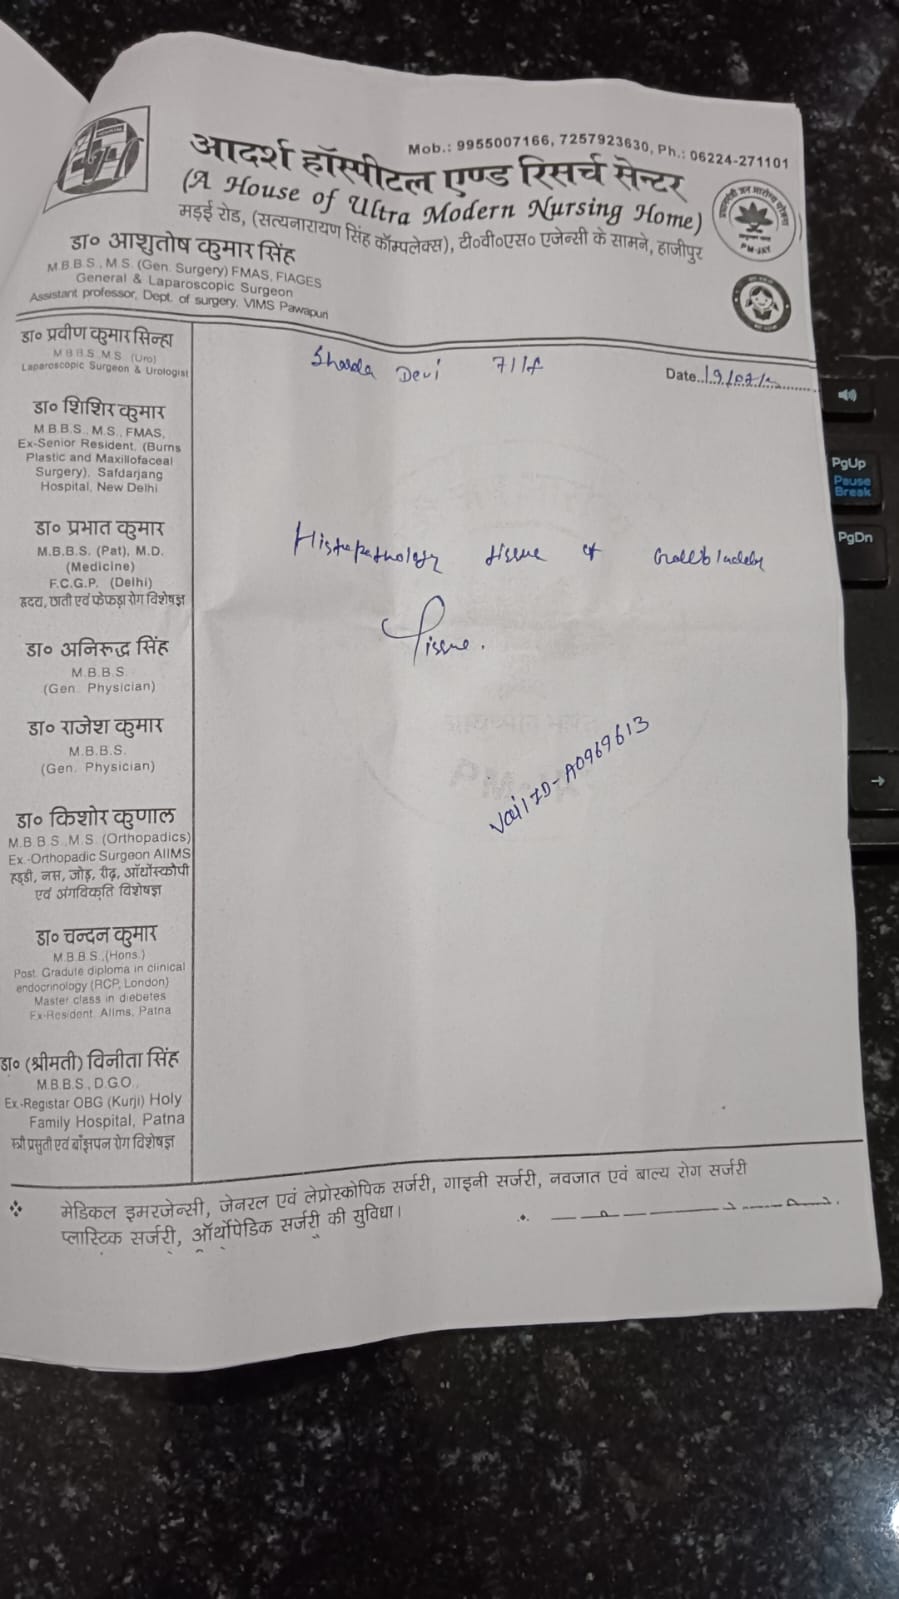 Mob.: 9955007166, 7257923630, Ph.: 06224-271101
आदर्श हॉस्पीटल एण्ड रिसर्च सेन्टर
(A House of Ultra Modern Nursing Home)
मड़ई रोड, (सत्यनारायण सिंह कॉम्पलेक्स), टी०वी०एस० एजेन्सी के सामने, हाजीपुर
PM-JAY
डा० आशुतोष कुमार सिंह
M.B.B.S., M.S. (Gen. Surgery) FMAS, FIAGES
General & Laparoscopic Surgeon
Assistant professor, Dept. of surgery, VIMS Pawapuri
डा० प्रवीण कुमार सिन्हा
M.B.B.S.,M.S. (Uro)
Laparoscopic Surgeon & Urologist
डा० शिशिर कुमार
M.B.B.S., M.S., FMAS,
Ex-Senior Resident, (Burns
Plastic and Maxillofaceal
Surgery), Safdarjang
Hospital, New Delhi
डा० प्रभात कुमार
M.B.B.S. (Pat), M.D.
(Medicine)
F.C.G.P. (Delhi)
हृदय, छाती एवं फेफड़ा रोग विशेषज्ञ
डा० अनिरूद्ध सिंह
M.B.B.S.
(Gen. Physician)
डा० राजेश कुमार
M.B.B.S.
(Gen. Physician)
डा० किशोर कुणाल
M.B.B.S.,M.S. (Orthopadics)
Ex.-Orthopadic Surgeon AIIMS
हड्डी, नस, जोड़, रीढ़, ऑर्थोस्कोपी
एवं अंगविकृति विशेषज्ञ
डा० चन्दन कुमार
M.B.B.S.,(Hons.)
Post. Gradute diploma in clinical
endocrinology (RCP, London)
Master class in diebetes
Ex-Resident, AIIms, Patna
डा० (श्रीमती) विनीता सिंह
M.B.B.S., D.G.O.,
Ex.-Registar OBG (Kurji) Holy
Family Hospital, Patna
स्त्री प्रसुती एवं बाँझपन रोग विशेषज्ञ
Sharda Devi 71/f
Date 19/07/
Histopathology tissue of Gallbladder
Tissue.
Vail ID-A0969613
मेडिकल इमरजेन्सी, जेनरल एवं लेप्रोस्कोपिक सर्जरी, गाइनी सर्जरी, नवजात एवं बाल्य रोग सर्जरी
प्लास्टिक सर्जरी, ऑर्थोपेडिक सर्जरी की सुविधा।
PgUp
Pause
Break
PgDn